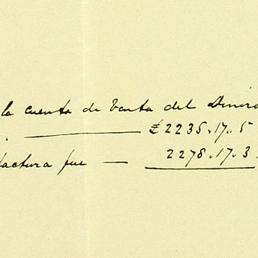 la cuenta de Venta del Dinero
. ——— £ 2235.17.5
factura fue — 2278.17.3